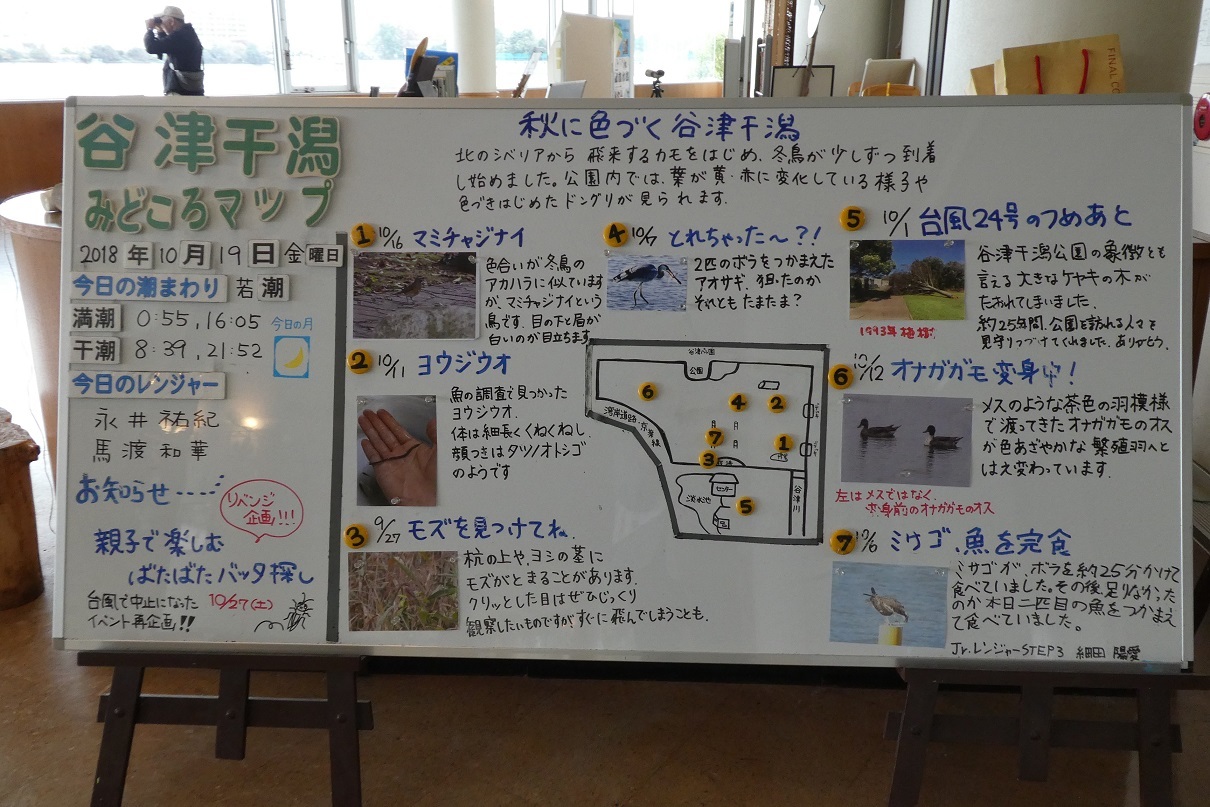 谷津干潟
みどころマップ
2018年10月19日金曜日
今日の潮まわり 若潮
満潮 0:55, 16:05
今日の月
干潮 8:39, 21:52
今日のレンジャー
永井祐紀
馬渡和華
お知らせ
リベンジ
企画!!!
親子で楽しむ
ばたばたバッタ探し
台風で中止になった 10/27(土)
イベント再企画!!
秋に色づく谷津干潟
北のシベリアから飛来するカモをはじめ、冬鳥が少しずつ到着
し始めました。公園内では、葉が黄・赤に変化している様子や
色づきはじめたドングリが見られます。
1 10/16 マミチャジナイ
色合いが冬鳥の
アカハラに似ています
が、マミチャジナイという
鳥です。目の下と眉が
白いのが目立ちます
2 10/11 ヨウジウオ
魚の調査で見つかった
ヨウジウオ.
体は細長くくねくねし、
顔つきはタツノオトシゴ
のようです
3 9/27 モズを見つけてね、
杭の上や、ヨシの茎に
モズがとまることがあります.
クリッとした目はぜひじっくり
観察したいものですがすぐに飛んでしまうことも.
4 10/7 とれちゃった〜?!
2匹のボラをつかまえた
アオサギ. 狙ったのか
それともたまたま?
谷津公園
公園
6
4
2
湾岸道路・京葉線
7
1
3
センター
淡水池
5
谷津川
5 10/1 台風24号のつめあと
谷津干潟公園の象徴とも
言える大きなケヤキの木が
たおれてしまいました.
約25年間、公園を訪れる人々を
見守りつづけてくれました。ありがとう.
1993年植樹
6 10/12 オナガガモ変身中!
メスのような茶色の羽模様
で渡ってきたオナガガモのオス
が色あざやかな繁殖羽へと
はえ変わっています.
左はメスではなく、
変身前のオナガガモのオス
7 10/6 ミサゴ、魚を完食
ミサゴが、ボラを約25分かけて
食べていました。その後、足りなかった
のか本日二匹目の魚をつかまえ
て食べていました。
Jr.レンジャーSTEP3 細田 陽愛
FINAL